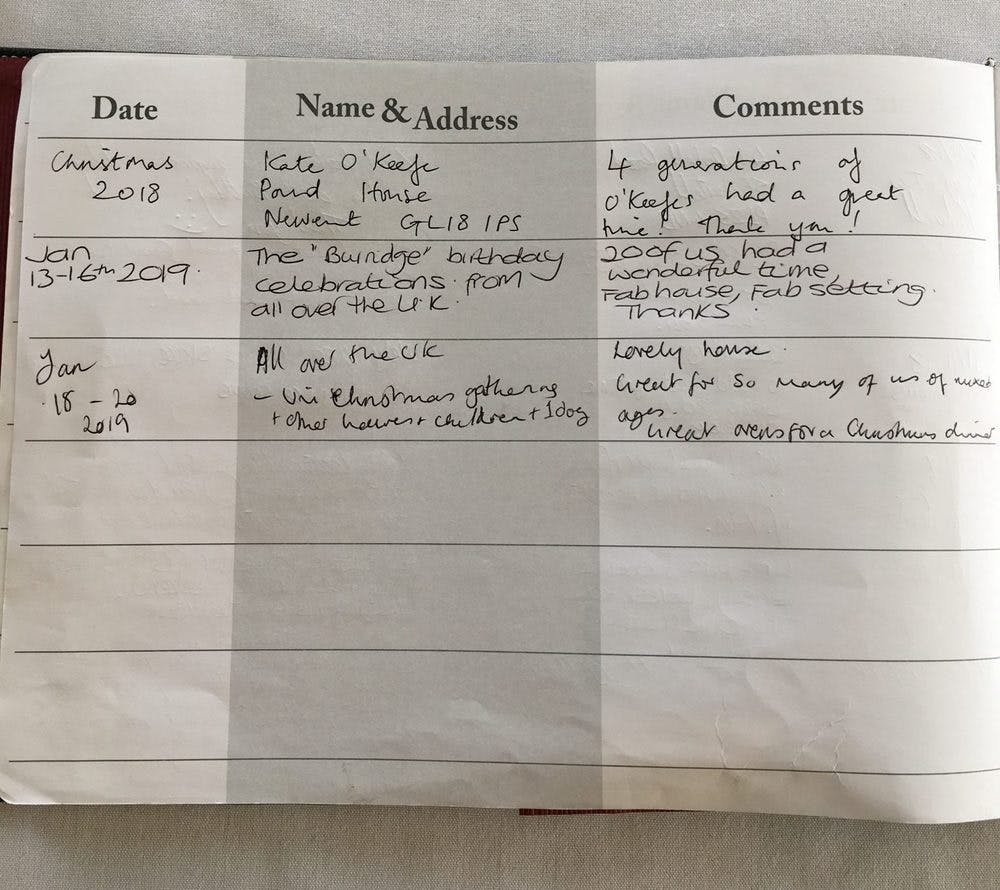 Date
Name & Address
Comments
Christmas
2018
Kate O'Keefe
Pound House
Newent GL18 1PS
4 generations of
O'Keefes had a great
time! Thank you!
Jan
13-16th 2019.
The "Burridge" birthday
celebrations. from
all over the U.K.
20 of us had a
wonderful time,
Fab house, Fab setting.
Thanks.
Jan
18 - 20
2019
All over the UK
- Uni Christmas gathering
+ other halves + children + 1 dog
Lovely house.
Great for so many of us of mixed
ages.
Great area for a Christmas dinner